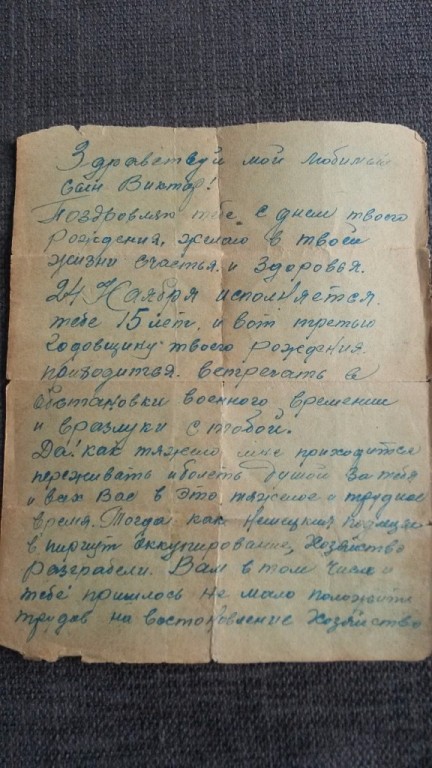 Здравствуй мой любимый
сын Виктор!
Поздровляю тебе с днем твоего
рождения, желаю в твоей
жизни счастья и здоровья.
24 Ноября исполняется
тебе 15 лет, и вот третью
годовщину твоего рождения
приходиться встречать в
обстановки военного времении
и вразлуки с тобой.
Да! как тяжело мне приходится
переживать иболеть душой за тебя
и вах Вас в это тяжелое и трудное
время. Тогда как Немецких
Аккупирование, Хозяйство
разграбели. Вам в том числе и
тебе пришлось не мало положить
трудов на востоновление Хозяйство